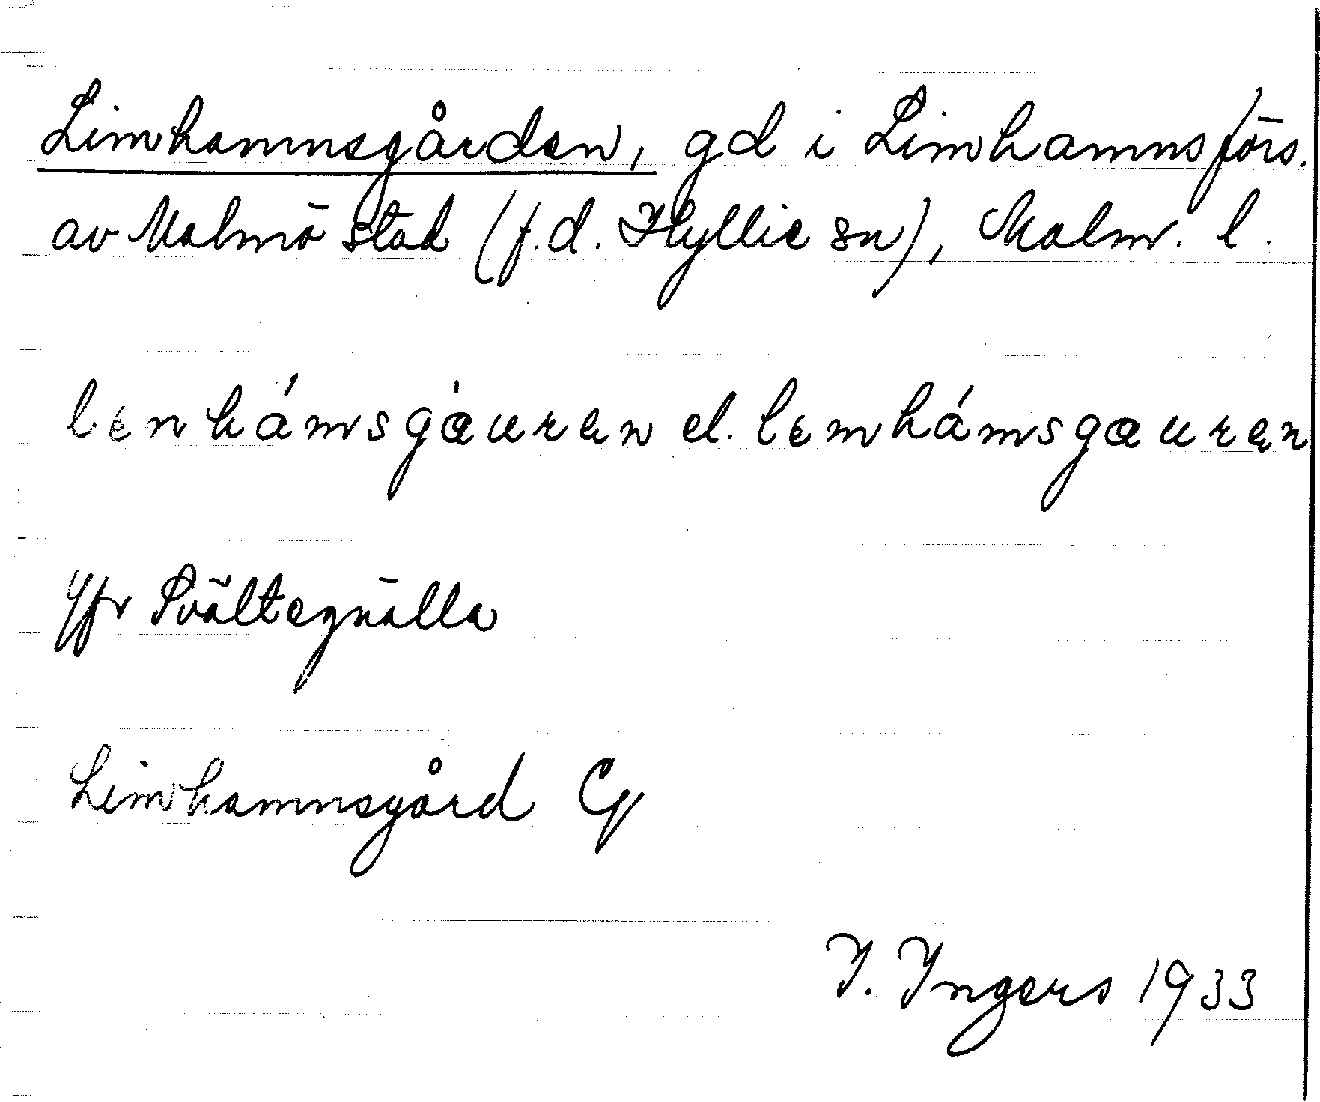 Limhamnsgården, gd i Limhamns förs.
av Malmö stad (f.d. Hyllie sn), Malm. l.
lenhámsgæuren el. lemhámsgæuren
Jfr Svältegnälla
Limhamnsgård
I. Ingers 1933